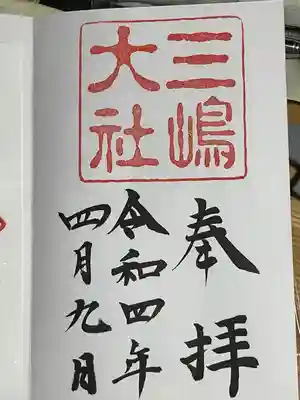 三嶋
大社
奉拝
令和四年
四月九日